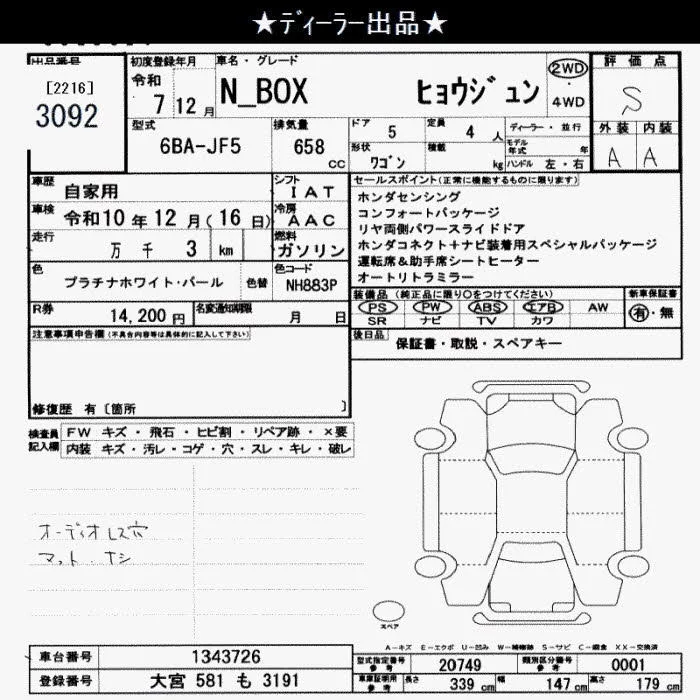 ★ディーラー出品★
出品番号
[2216]
3092
初度登録年月
令和
7 12 月
車名・グレード
N_BOX ヒョウジュン
2WD
・
4WD
評価点
S
外装 内装
A A
型式
6BA-JF5
排気量
658
cc
ドア 5
定員 4 人
形状 ワゴン
積載 kg
ディーラー・並行
モデル年式 年
ハンドル 左・右
車歴 自家用
シフト IAT
車検 令和10 年 12 月(16 日)
冷房 AAC
走行 万 千 3 km
燃料 ガソリン
色 プラチナホワイト・パール 色替
色コード NH883P
R券 14,200 円
名変通知期限 月 日
セールスポイント(正常に機能するものに限ります)
ホンダセンシング
コンフォートパッケージ
リヤ両側パワースライドドア
ホンダコネクト+ナビ装着用スペシャルパッケージ
運転席&助手席シートヒーター
オートリトラミラー
装備品(純正品に限り○をつけてください)
PS PW ABS エアB AW
SR ナビ TV カワ
新車保証書
有・無
後日品 保証書・取説・スペアキー
注意事項申告欄(不具合内容等は具体的に記入して下さい)
修復歴 有〔箇所 〕
検査員記入欄
FW キズ・飛石・ヒビ割・リペア跡・×要
内装 キズ・汚レ・コゲ・穴・スレ・キレ・破レ
オーディオレス穴
マット・ナシ
スペア
A-キズ E-エクボ U-凹み W-補修跡 S-サビ C-腐食 XX-交換済
車台番号 1343726
登録番号 大宮 581 も 3191
型式指定番号 参考 20749
類別区分番号 参考 0001
車庫証明用 参考 長さ 339 cm 幅 147 cm 高さ 179 cm